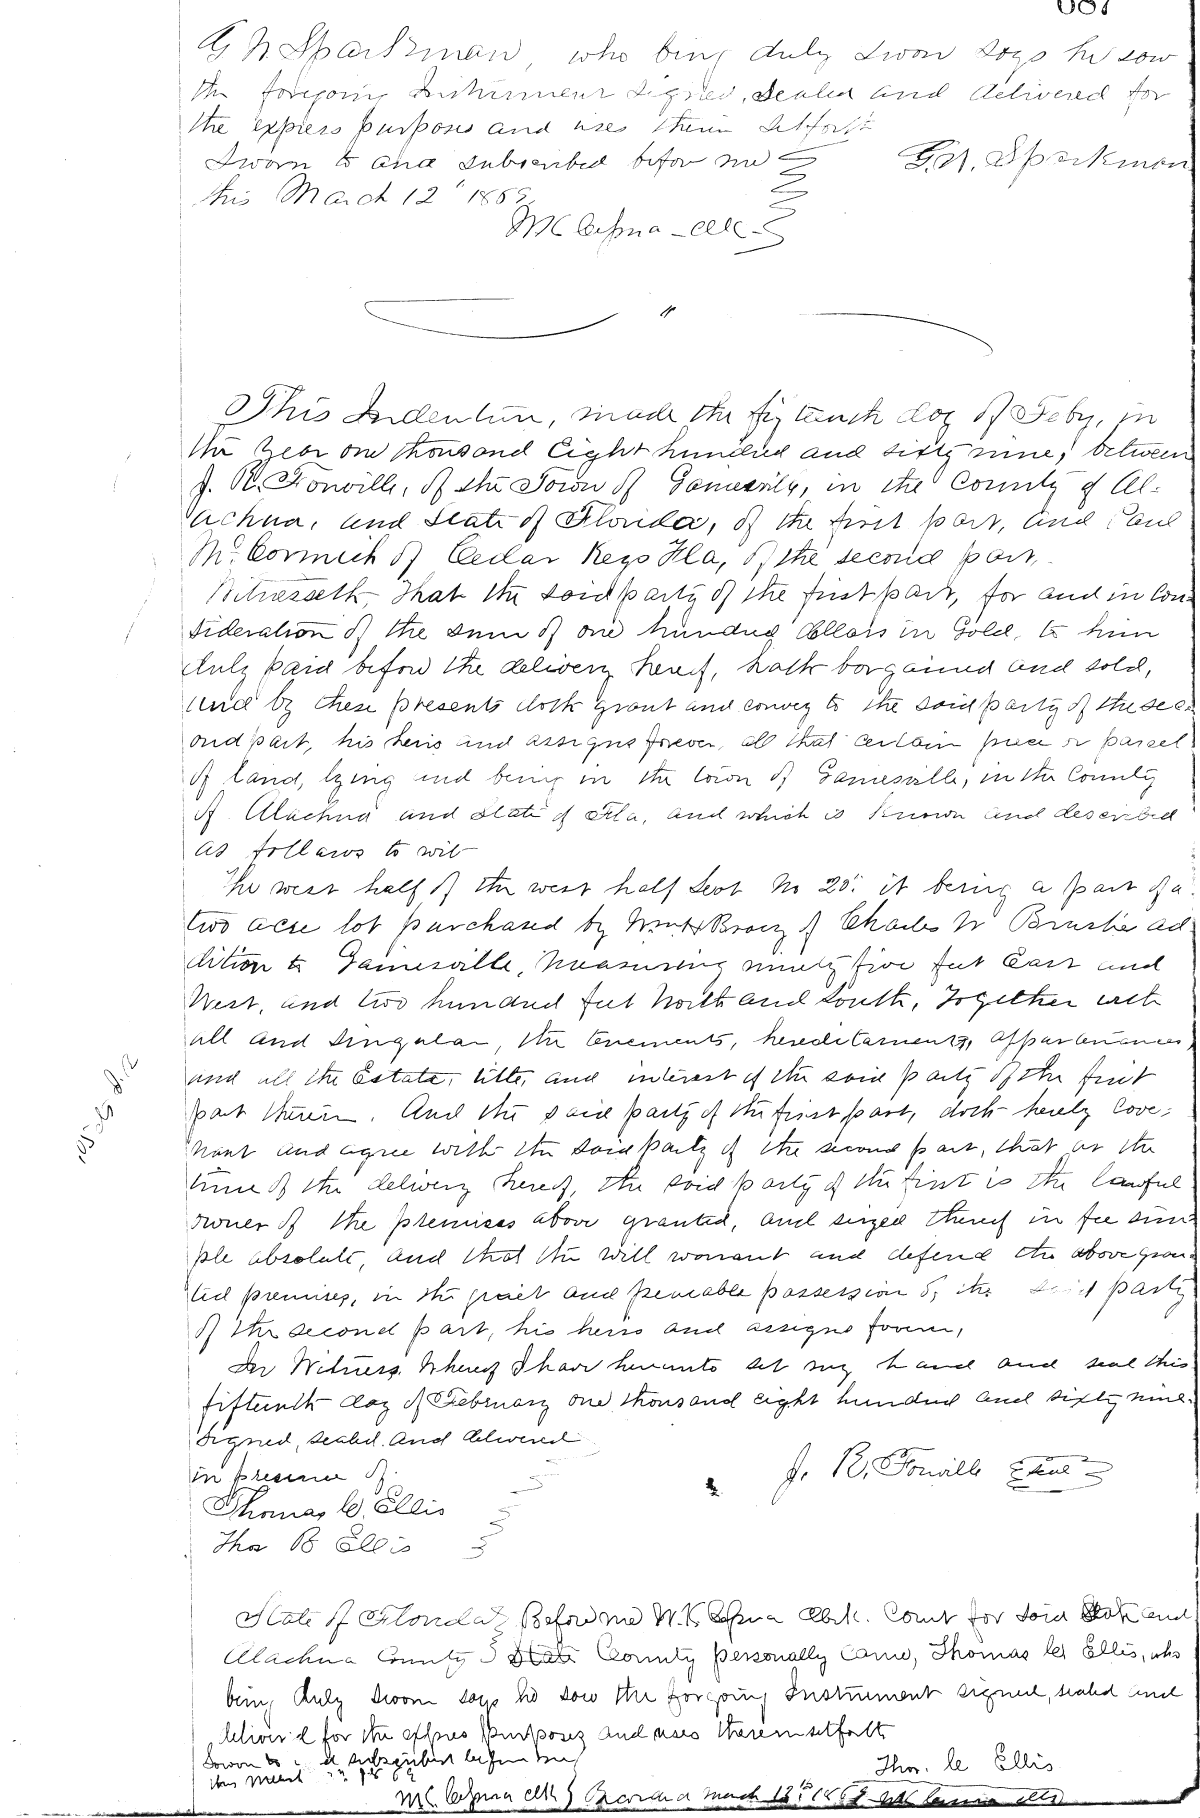 G N Sparkman, who being duly swon says he saw
the foregoing Instrument signed, sealed and delivered for
the express purposes and uses therin setforth
Sworn to and subscribed before me G. N. Sparkman
this March 12" 1869
Cessna - Clk -
"
This Indenture, made the fifteenth day of Feby, in
the year one thousand Eight hundred and sixty nine, between
J. R. Fonville, of the Town of Gainesville, in the County of Al-
achua, and State of Florida, of the first part, and Paul
Mc Cormick of Cedar Keys Fla, of the second part,
Witnesseth, That the said party of the first part, for and in Con-
sideration of the sum of one hundred dollars in Gold, to him
duly paid before the delivery hereof, hath bargained and sold,
and by these presents doth grant and convey to the said party of the sec-
ond part, his heirs and assigns forever, all that certain piece or parcel
of land, lying and being in the town of Gainesville, in the County
of Alachua and State of Fla, and which is known and described
as follows to wit
The west half of the west half Lot No 20. it being a part of a
two acre lot purchased by of Charles W Brush's ad
dition to Gainesville, measuring ninety five feet East and
West, and two hundred feet North and South, Together with
all and singular, the tenements, hereditaments, appurtenances,
and all the Estate, title, and interest of the said party of the first
part therein. And the said party of the first part, doth hereby Cove-
nant and agree with the said party of the second part, that at the
time of the delivery hereof, the said party of the first is the lawful
owner of the premises above granted, and seized thereof in fee sim-
ple absolute, and that he will warrant and defend the above gran-
ted premises, in the quiet and peaceable possession of the said party
of the second part, his heirs and assigns forever,
In Witness Whereof I have hereunto set my hand and seal this
fifteenth day of February one thousand eight hundred and sixty nine.
Signed, sealed and delivered
in presence of J. R. Fonville seal
Thomas C. Ellis
Thos B Ellis
State of Florida Before me W. K. Cessna Clerk. Court for said State and
Alachua County State County personally Came, Thomas C Ellis, who
being duly sworn says he saw the forgoing Instrument signed, sealed and
deliver'd for the express purposes and uses therein setforth
Sworn to subscribed before me Thos. C Ellis
this March
Cessna clk Recorded March 12th 1869